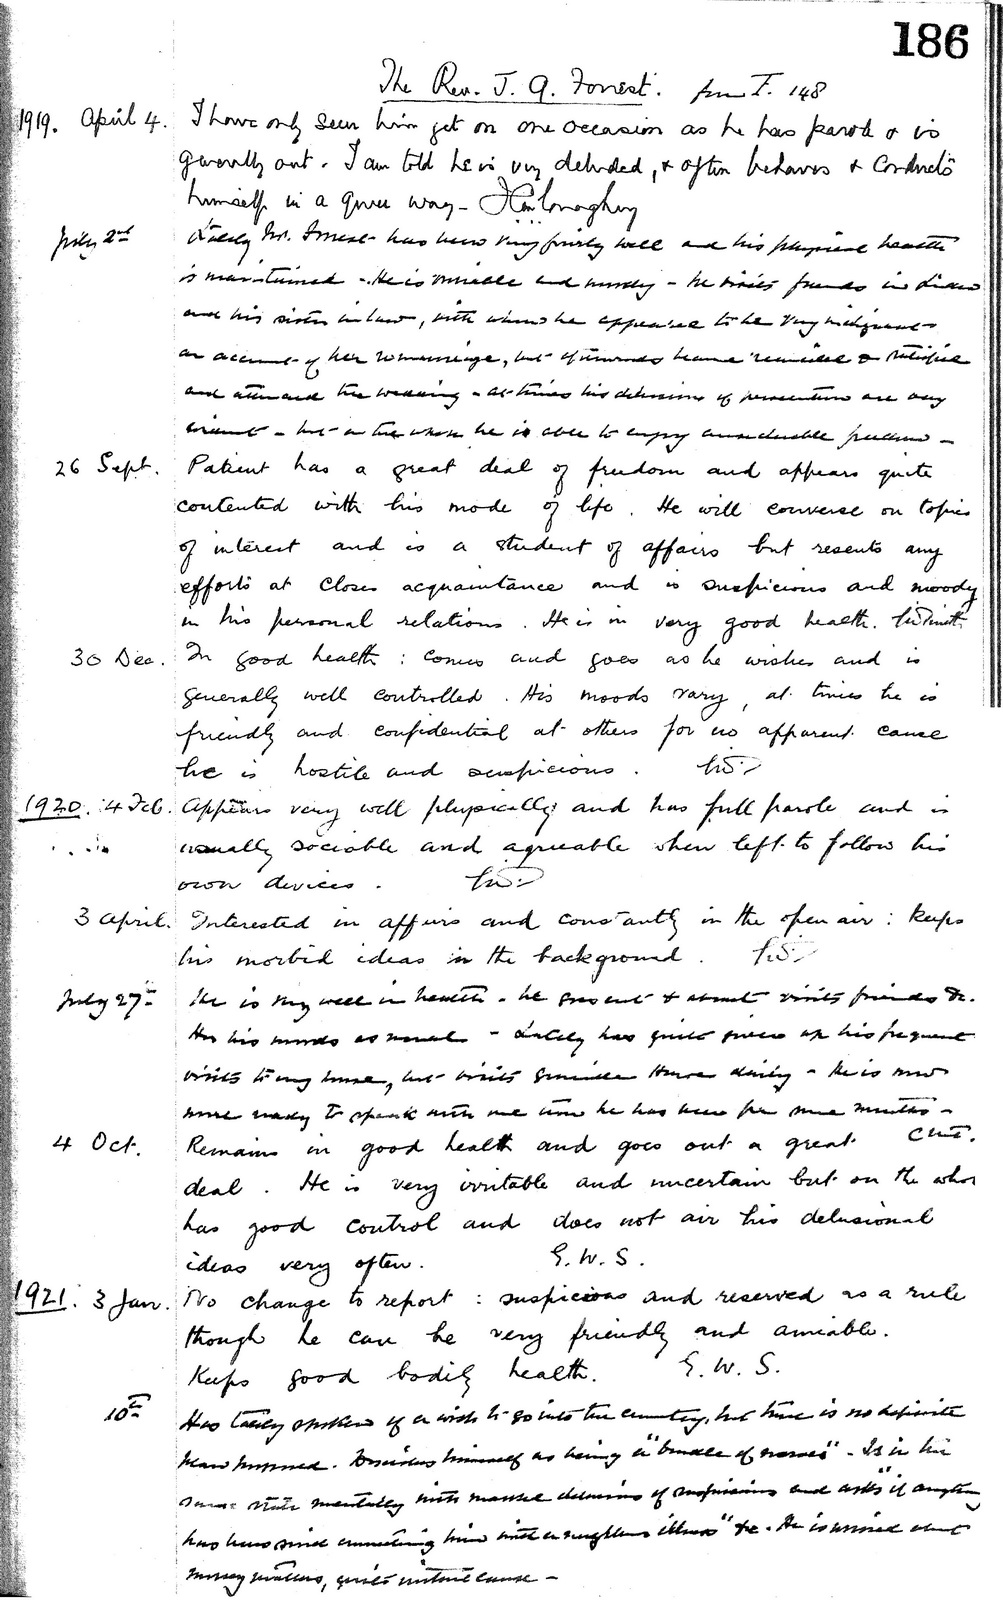 186
The Rev. J. G. Forrest. from F. 148
1919. April 4. I have only seen him yet on one occasion as he has parole & is
generally out. I am told he is very deluded, & often behaves & conducts
himself in a queer way –
July 2nd Lately Mr. Forrest has been very fairly well and his physical health
is maintained – He is variable and moody – he visits friends in London
and his sister in law, with whom he appeared to be very indignant
on account of her remarriage, but afterwards became reconciled &
and attended the wedding – at times his delusions of persecution are very
evident – but on the whole he is able to enjoy considerable freedom –
26 Sept. Patient has a great deal of freedom and appears quite
contented with his mode of life. He will converse on topics
of interest and is a student of affairs but resents any
efforts at closer acquaintance and is suspicious and moody
in his personal relations. He is in very good health.
30 Dec. In good health : comes and goes as he wishes and is
generally well controlled. His moods vary, at times he is
friendly and confidential at others for no apparent cause
he is hostile and suspicious.
1920. 4 Feb. Appears very well physically and has full parole and is
usually sociable and agreeable when left to follow his
own devices.
3 April. Interested in affairs and constantly in the open air : keeps
his morbid ideas in the background.
July 27th He is very well in health – he goes out & about visits friends &c.
Has his moods as usual – Lately has quite given up his frequent
visits to my house, but visits House daily – He is now
more ready to speak with me than he has been for some months –
4 Oct. Remains in good health and goes out a great
deal. He is very irritable and uncertain but on the whole
has good control and does not air his delusional
ideas very often. G. W. S.
1921. 3 Jan. No change to report : suspicious and reserved as a rule
though he can be very friendly and amiable.
Keeps good bodily health. G. W. S.
10th Has lately spoken of a wish to go into the country, but there is no definite
plan proposed. Describes himself as being a "bundle of nerves" – Is in the
same state mentally with marked delusions of suspicions and asks "if anything
has been said connecting him with a neighbours illness" &c. He is worried about
money matters, quite without cause –